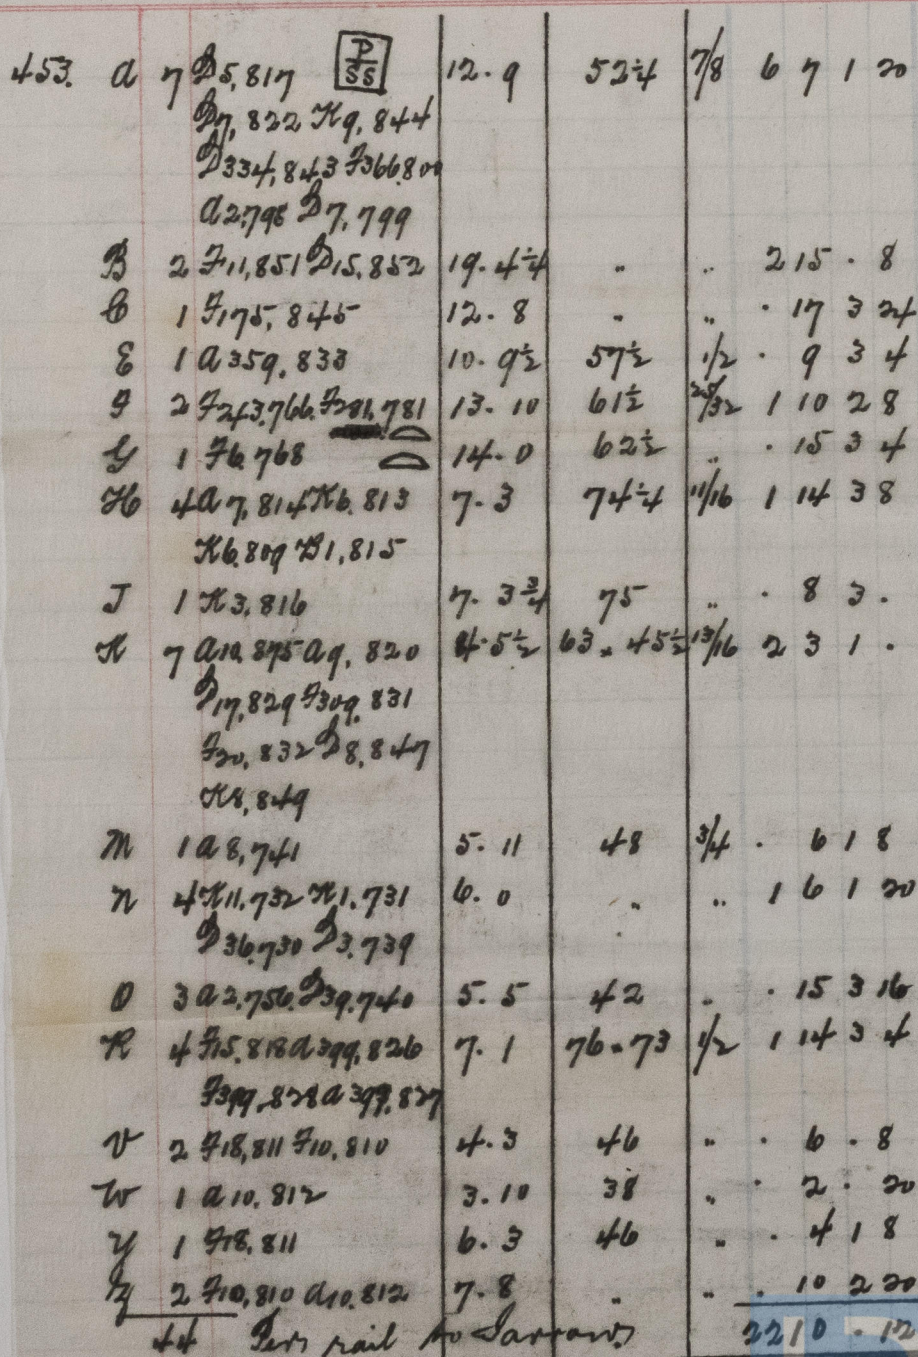 453. A 7 D5,817 P/SS 12.9 52¼ 7/8 6 7 1 20
D7,822 K9,844
D334,843 F366,800
A2,798 D7,799
B 2 F11,851 D15,852 19.4¼ " " 2 15 . 8
C 1 F175,845 12.8 " " . 17 3 24
E 1 A359,833 10.9½ 57½ 1/2 . 9 3 4
F 2 F243,766. F281,781 13.10 61½ /32 1 10 2 8
G 1 F6,768 14.0 62½ " . 15 3 4
H 4 A7,814 K6,813 7.3 74¼ 11/16 1 14 3 8
K6,809 B1,815
J 1 K3,816 7.3¾ 75 " . 8 3 .
K 7 A10,875 A9,820 4.5½ 63 × 45½ 13/16 2 3 1 .
D17,829 F309,831
F20,832 D8,847
K8,849
M 1 A8,741 5.11 48 3/4 . 6 1 8
N 4 K11,732 K1,731 6.0 " " 1 6 1 20
D36,730 D3,739
O 3 A2,756. D39,740 5.5 42 " . 15 3 16
R 4 F15,818 A399,826 7.1 76 × 73 1/2 1 14 3 4
F399,828 A399,827
V 2 F18,811 F10,810 4.3 46 " . 6 . 8
W 1 A10,812 3.10 38 " . 2 . 20
Y 1 F18,811 6.3 46 " . 4 1 8
Z 2 F10,810 A10,812 7.8 " " . 10 2 20
44 Per rail to Jarrow 22 10 . 12